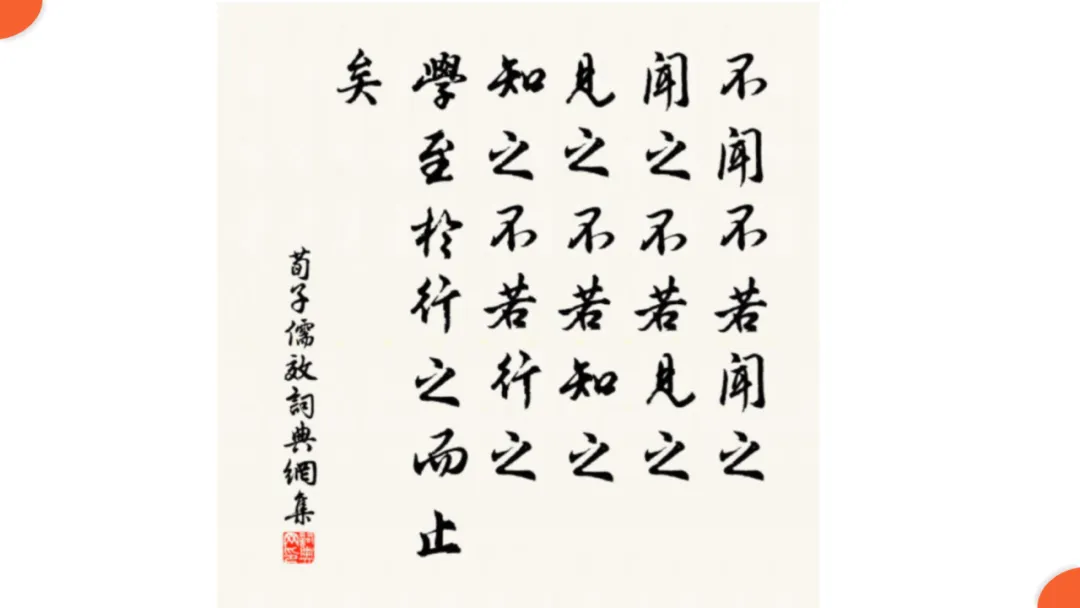 不聞不若聞之
聞之不若見之
見之不若知之
知之不若行之
學至於行之而止
矣
荀子儒效詞典網集